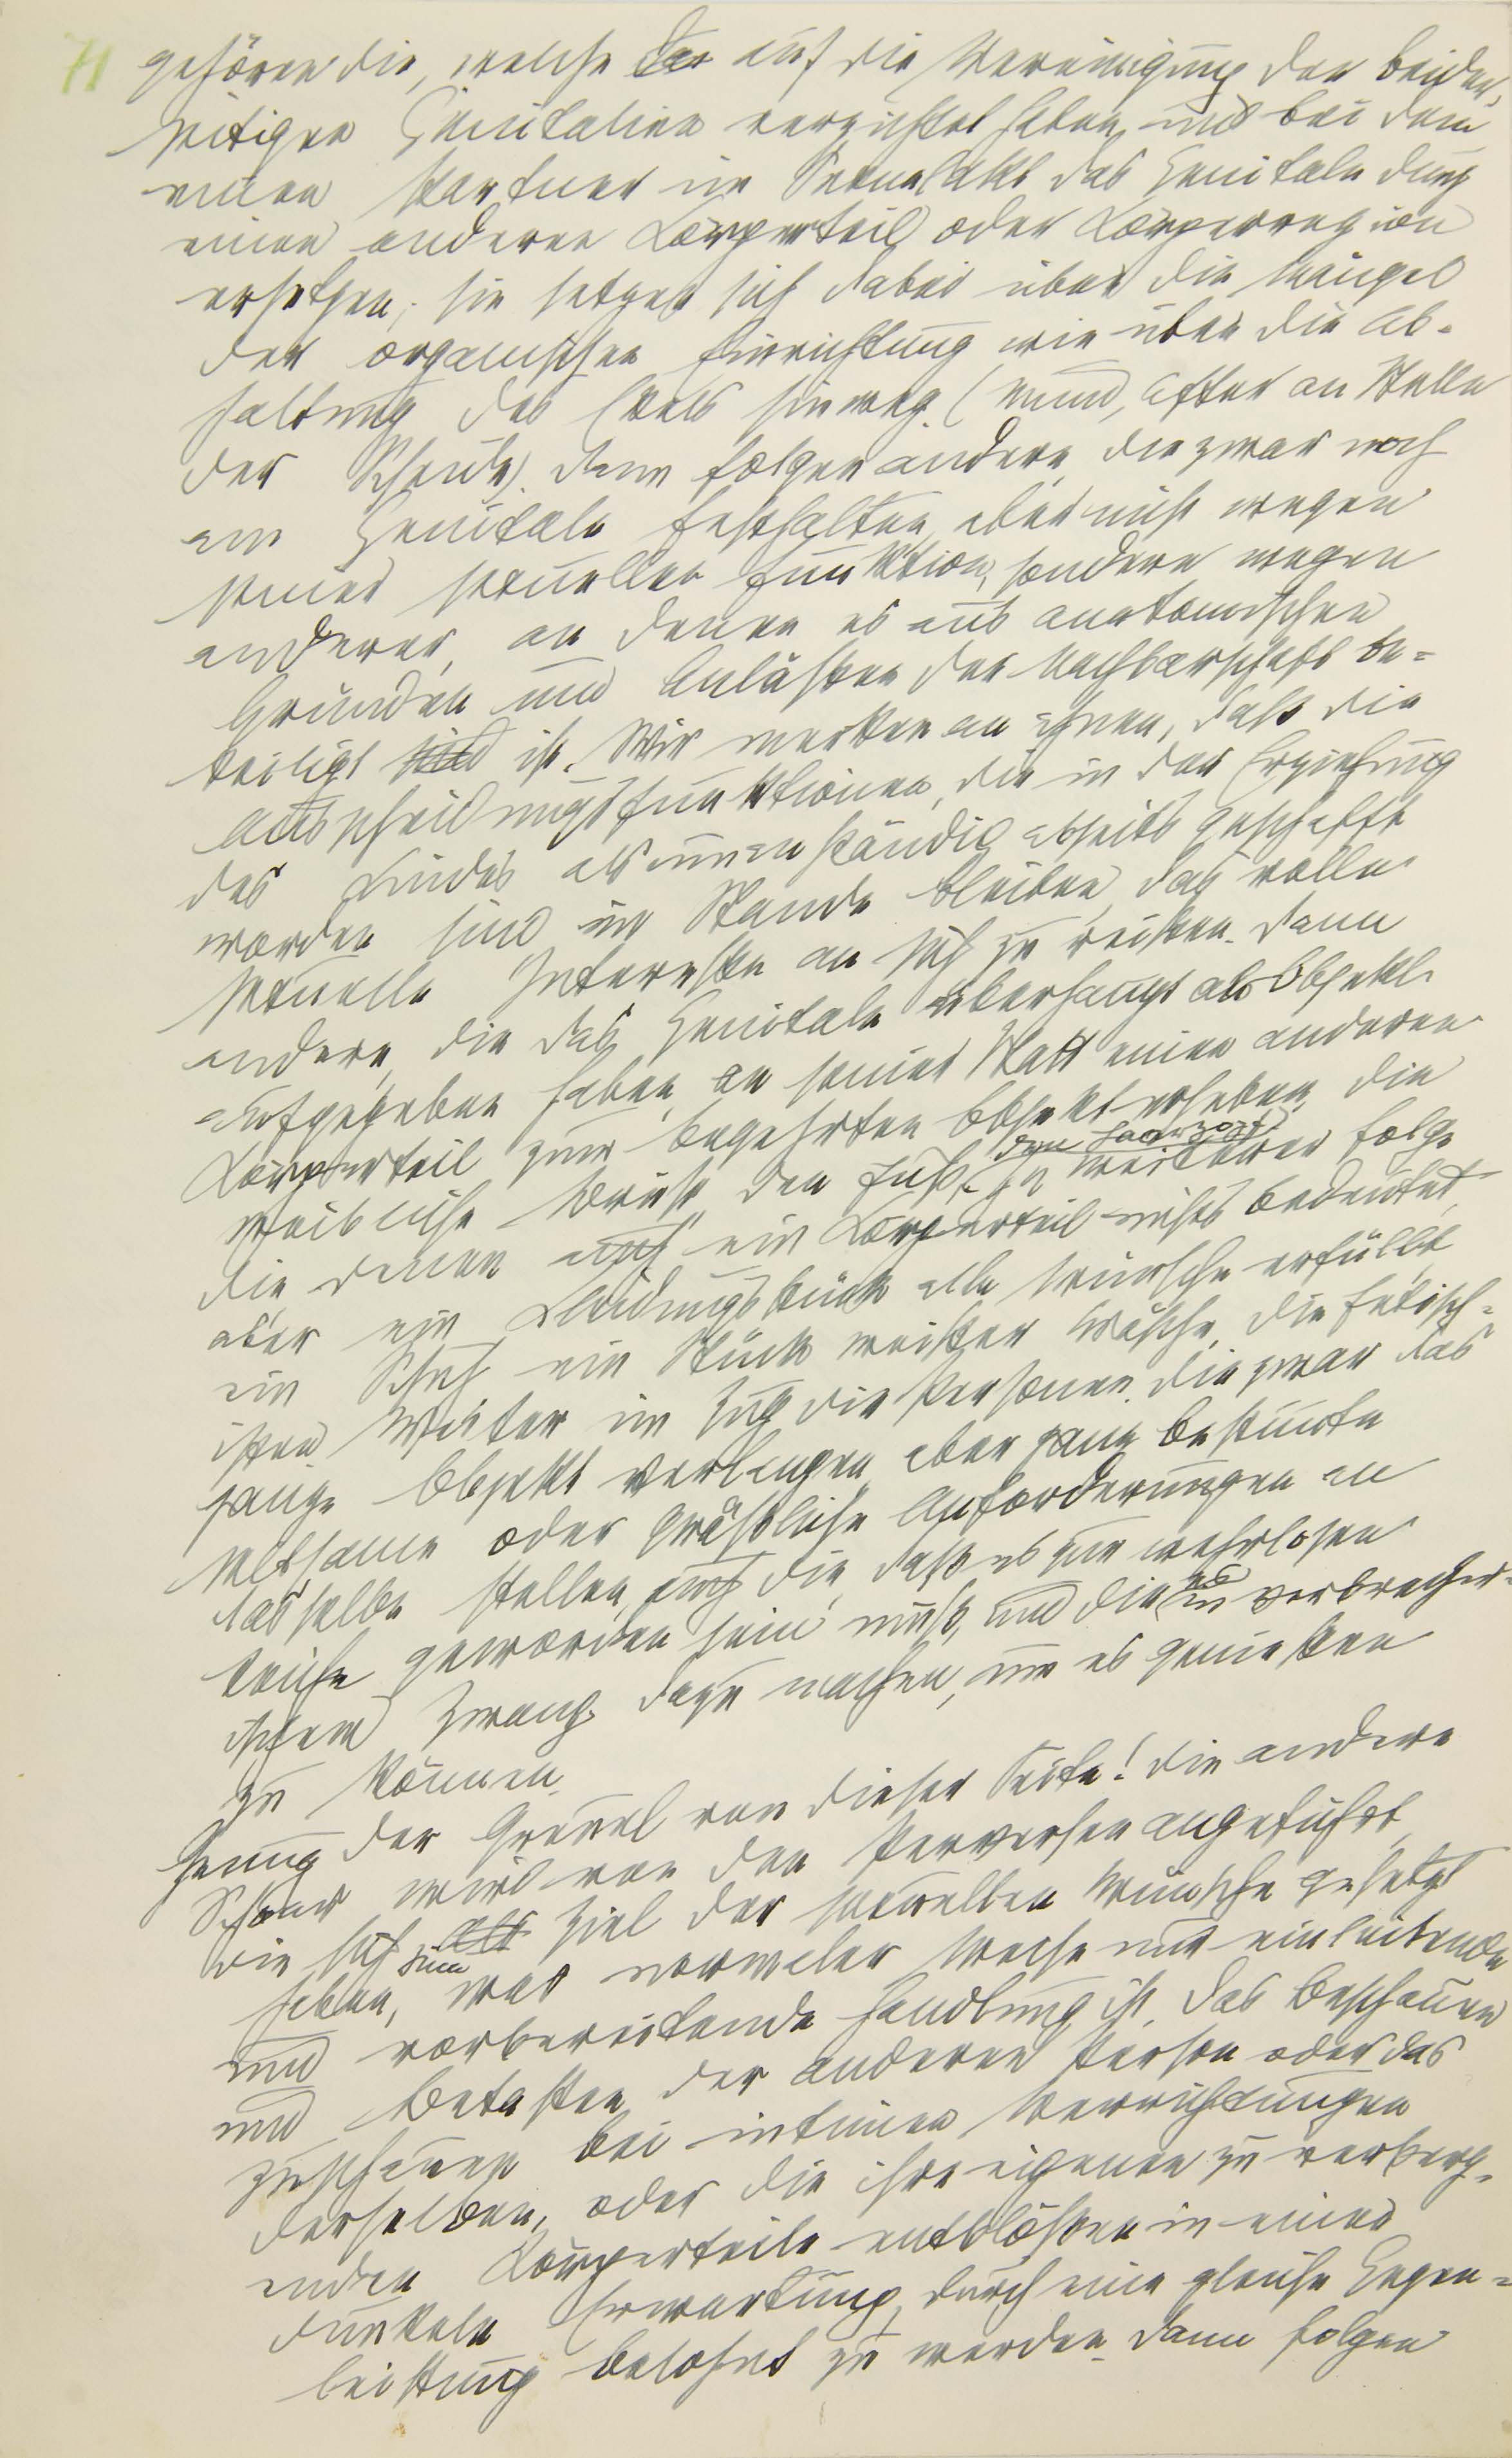 71
gehören die, welche auf die Vereinigung der beider-
seitigen Genitalien verzichtet haben und bei dem
einen Partner im Sexualakt das Genitale durch
einen anderen Körperteil oder Körperregion
ersetzen; sie setzen sich dabei über die Mängel
der organischen Einrichtung wie über die Ab-
haltung des Ekels hinweg. (Mund, After an Stelle
der Scheide). Dann folgen andere, die zwar noch
am Genitale festhalten, aber nicht wegen
seiner sexuellen Funktion, sondern wegen
anderer, an denen es aus anatomischen
Gründen und Anlässen der Nachbarschaft be-
teiligt sind ist. Wir merken an ihnen, daß die
Ausscheidungsfunktionen, die in der Erziehung
des Kindes als unanständig abseits geschafft
worden sind im Stande bleiben, das volle
sexuelle Interesse an sich zu reißen. Dann
andere, die das Genitale überhaupt als Objekt
aufgegeben haben, an seiner Statt einen anderen
Körperteil zum begehrten Objekt erheben, die
weibliche Brust, den Fuß, den Haarzopf. In weiterer Folge
die, denen auch ein Körperteil nichts bedeutet,
aber ein Kleidungsstück alle Wünsche erfüllt,
ein Schuh, ein Stück weißer Wäsche, die Fetisch-
isten. Weiter im Zug die Personen, die zwar das
ganze Objekt verlangen, aber ganz bestimmte
seltsame oder gräßliche Anforderungen an
dasselbe stellen, auch die, daß es zur wehrlosen
Leiche geworden sein muß, und die es in verbrecher-
ischem Zwang dazu machen, um es genießen
zu können.
Genug der Greuel von dieser Seite! Die andere
Schaar wird von den Perversen angeführt,
die sich zum Ziel der sexuellen Wünsche gesetzt
haben, was normaler Weise nur einleitende
und vorbereitende Handlung ist. Das Beschauen
und Betasten der anderen Person oder das
Zuschauen bei intimen Verrichtungen
derselben, oder die ihre eigenen zu verberg-
enden Körperteile entblößen in einer
dunkeln Erwartung, durch eine gleiche Gegen-
leistung belohnt zu werden. Dann folgen